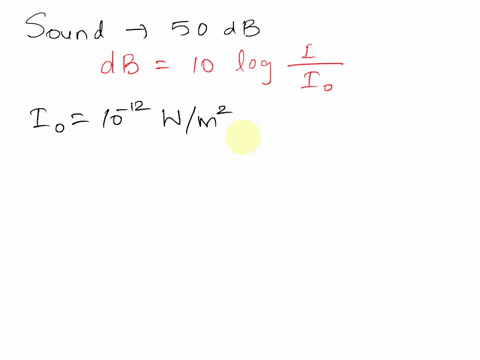 Sound → 50 dB
dB = 10 log I/I₀
I₀ = 10⁻¹² W/m²